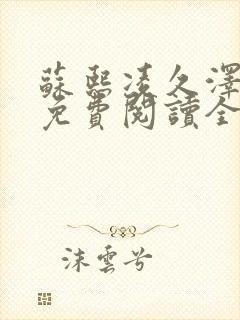 蘇熙凌久澤
免費閱讀全
沫雲兮